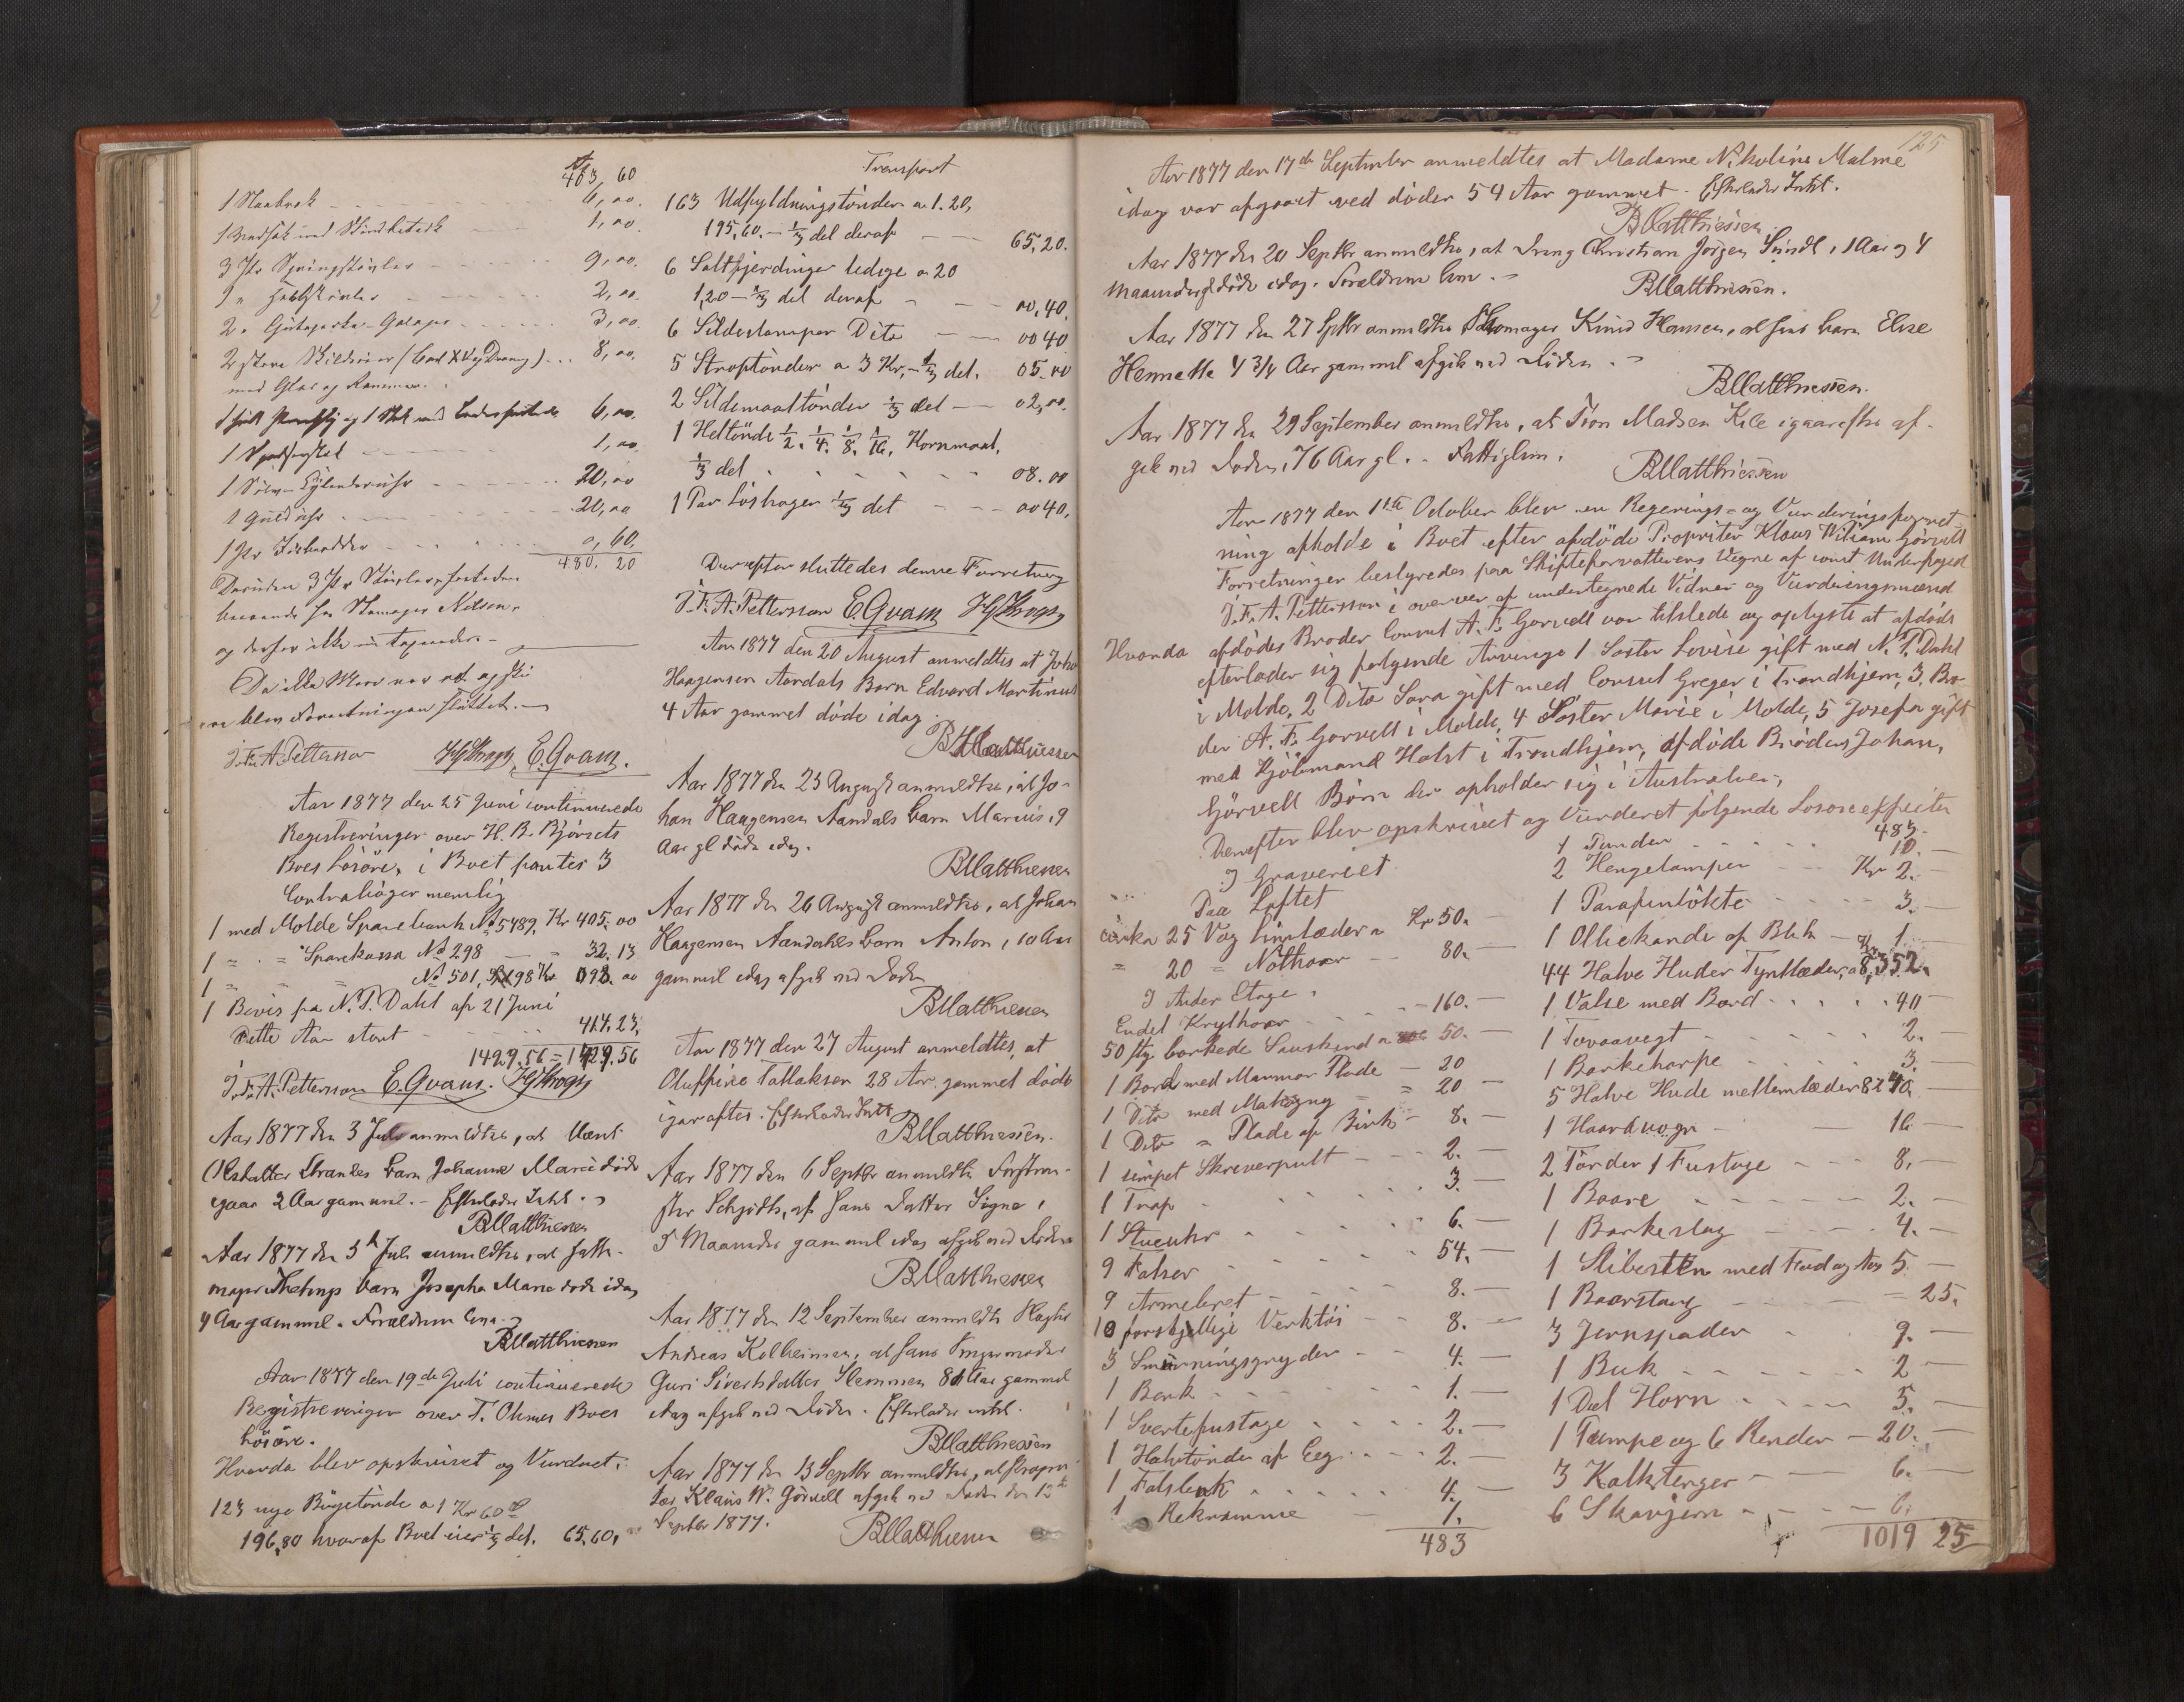 403, 60
1 6,00.
1 1,00.
3 Pr 9,00.
2,00.
2 3,00.
2 store Skilderier (Carl XV og Dronng) 8,00.
med Glas og Rammer.
6,00.
1 1,00
1 Sølv-Sylinderuhr 20,00
1 Gulduhr 20,00
1 Pr 0,60,
480. 20
Desuden 3 Pr
beroende hos Skomager Nilsen,
og derfor ikke
Da ikke Mere var at opskri
ve blev Forretningen sluttet.
J.F.A. Petterson E. Qvam.
Aar 1877 den 25 Juni continuerede
Registreringer over H. B. Bjørsets
Boes Løsøre, i Boet fantes 3
Contrabøger nemlig
1 med Molde Sparebank No 5489, Kr 405.00
1 = " = Sparekassa No 298 — = 32.13
1 = No 501, 98 Kr 098.00
1 Bevis fra N. P. Dahl af 21 Juni
Dette Aar stort 414.23,
1429.56 = 1429.56
J.F.A. Petterson E. Qvam.
Aar 1877 den 3 Juli anmeldtes, at
Strandes barn Johanne Marie døde
igaar 2 Aar gammel. – Efterlader Intet.
BMatthiesen
Aar 1877 den 5 Juli anmeldtes, at
barn Josepha Marie døde idag
4 Aar gammel. Forældrene leve.
BMatthiesen
Aar 1877 den 19de Juli continuerede
Registreringer over T. Olsens Boes
Løsøre.
Hvorda blev opskrivet og Vurderet.
123 nye Bøgetønde a 1 Kr 60
196,80 hvoraf Boet eier 1/3 del. 65,60,
Transport
163 Udfyldningstønder a 1.20,
195,60.— 1/3 del deraf — 65,20.
6 Saltfjerdinger ledige a 20
1,20 — 1/3 del deraf — 00,40,
6 Sildestamper Dito — 00 40
5 Straptønder a 3 Kr,- 1/3 del. 05.00
2 Sildemaaltønder 1/3 del — 02,00.
1 Heltønde 1/2. 1/4. 1/8. 1/16. Kornmaal,
1/3 del 08.00
1 Par Løshager 1/3 del 00 40,
Derefter sluttedes denne Forretning
J.F.A. Petterson E. Qvam
Aar 1877 den 20 August anmeldtes at Joha
Haagensen Aandals Barn Edvard Martinus
4 Aar gammel døde idag.
BMatthiesen
Aar 1877 den 23 August anmeldtes, at Jo-
han Haagensen Aandals barn Marius, 9
Aar gl døde idag.
BMatthiesen
Aar 1877 den 26 August anmeldtes, at Johan
Haagensen Aandahls barn Anton, 10 Aar
gammel idag afgik ved Døden
BMatthiesen
Aar 1877 den 27 August anmeldtes, at
Oluffine Tallaksen 28 Aar gammel døde
igaraftes. Efterlader Intet
BMatthiesen.
Aar 1877 den 6 Septbr anmeldte Forstme-
ster Schjøth, at hans Datter Signe,
5 Maaneder gammel idag afgik ved Døden
BMatthiesen
Aar 1877 den 12 September anmeldte
Andreas Kolheimen, at hans
Guri Sivertsdatter Hemnen 81 Aar gammel
idag afgik ved Døden. Efterlader intet.
BMatthiesen
Aar 1877 den 13 Septbr anmeldtes, at Propri-
tær Klaus W. Gørvell afgik ved Døden den 12te
Septbr 1877.
BMatthiesen
125
Aar 1877 den 17de September anmeldtes at Madame Nikoline Malme
idag var afgaaet ved døden 54 Aar gammel. Efterlader Intet.
BMatthiesen
Aar 1877 den 20 Septbr anmeldtes, at Dreng Christian Jørgen Sundt, 1 Aar og 4
Maaneder gl døde idag. Forældrene leve.
BMatthiesen.
Aar 1877 den 27 Septbr anmeldte Skomager Knud Hansen, at hans barn Elise
Hennette 4 3/4 Aar gammel afgik ved Døden.
BMatthiesen.
Aar 1877 den 29 September anmeldtes, at Iron Madsen Kile igaaraftes af-
gik ved Døden, 76 Aar gl. – Fattiglem.
BMatthiesen
Aar 1877 den 1te October blev en Regerings- og Vurderingsforret-
ning afholdt i Boet efter afdøde Propritær Klaus Wiliam Gørvell
Forretninger bestyredes paa Skifteforvalterens Vegne af constt Underfoged
J.F.A. Petterson i overvær af undertegnede Vidner og Vurderingsmænd
Hvorda afdødes Broder Consul A. F. Gørvell var tilstede og oplyste at afdøde
efterlader sig følgende Arvinge 1 Søster Lovise gift med N. P. Dahl
i Molde, 2 Dito Sara gift med Consul Greger i Trondhjem, 3. Bro-
der A. F. Gørvell i Molde, 4 Søster Marie i Molde, 5 Josefa gift
med Kjøbmand Holst i Trondhjem, Afdøde Broders Johan,
Gørvell Børn der opholder sig i Australien,
Derefter blev opskrevet og Vurderet følgende Løsøre effecter
I Graveriet
Paa Loftet
cirka 25 Vog Limlæder a Kr 50. —
= 20 = Nøthaar — 80. —
I Anden Etage.
Endel Krylhaar 160. —
50 stg. barkede Saueskind a 50. —
1 Bord med Marmor Plade — 20
1 Dito med Mahogny = 20 —
1 Dito = Plade af Birk — 8. —
1 simpel Skreverpult 2. —
1 Trap 3. —
1 Stueuhr 6. —
9 Falser 54. —
9 Armeleret 8. —
10 forskjellige Verktøi 8. —
3 Smørningsgryder 4. —
1 Benk 1. —
1 Svertefustage 2. —
1 Halvtønde af Eeg 2. —
1 Falsbenk 4. —
1 Rekramme 1.
483
483.—
1 Tønder 10. —
2 Hengelamper Kr 2. —
1 Parafinløkte 3. —
1 Olliekande af Blik — Kr 1 —
44 Halve Huder Tyntlæder, a 8, 352.
1 Valse med Bord 40 —
1 Tovaavegt 2. —
1 Barkeharpe 3. —
5 Halve Hude mellemlæder 8 40. —
1 Haardvogn — 16 —
2 Tønder 1 Fustage 8. —
1 Baare 2. —
1 Barkeslag 4. —
1 Slibesten med Fod og 5 —
1 Baarstang — 25.
3 Jernspader 9. —
1 Buk 2 —
1 Del Horn 5. —
1 Pumpe og 6 Render — 20. —
3 Kalkstenger 6. —
6 Skavjern 6.
1019 25